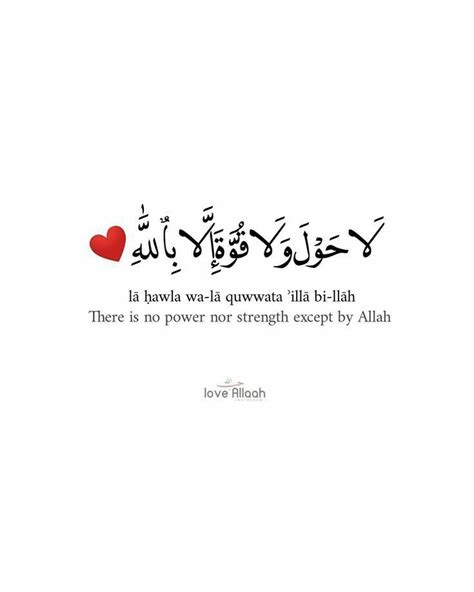 لَا حَوْلَ وَلَا قُوَّةَ إِلَّا بِاللّٰهِ
lā ḥawla wa-lā quwwata ʾillā bi-llāh
There is no power nor strength except by Allah
love Allaah